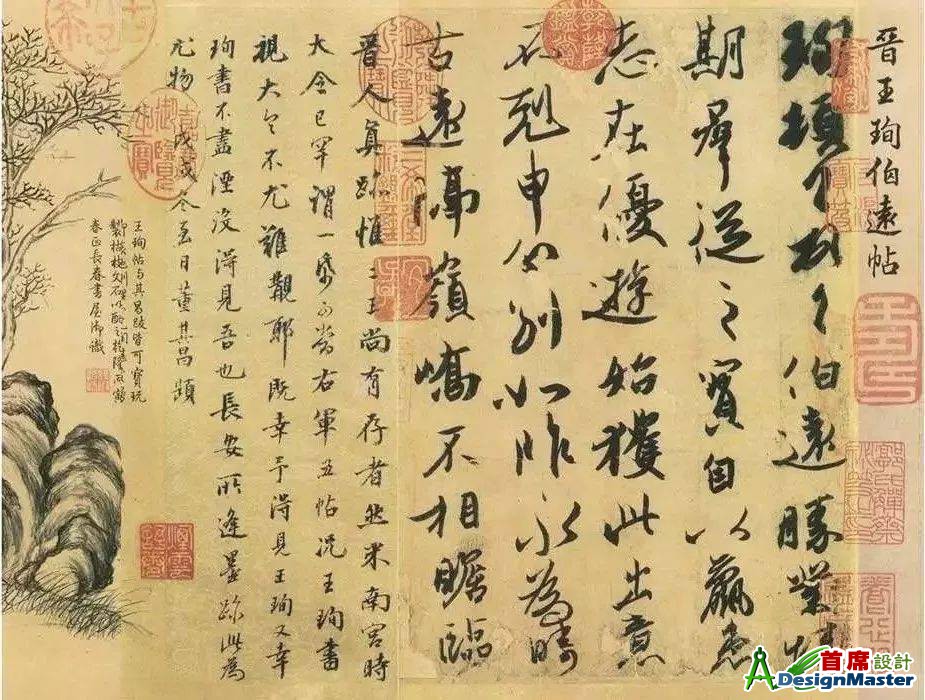 晉王珣伯遠帖
珣頓首頓首伯遠勝業情
期羣從之寶自以羸患
志在優遊始獲此出意
不剋申分別如昨永為疇
古遠隔嶺嶠不相瞻臨
晉人真跡惟二王尚有存者然米南宮時
大令已罕謂一紙可當右軍五帖況王珣書
視大令不尤難覯耶既幸予得見王珣又幸
珣書不盡湮沒得見吾也長安所逢墨跡此為
尤物戊戌冬至日董其昌題
王珣帖與其昌跋皆可寶玩
乾隆丙寅
春正長春書屋御識
首席設計
ADesignMaster